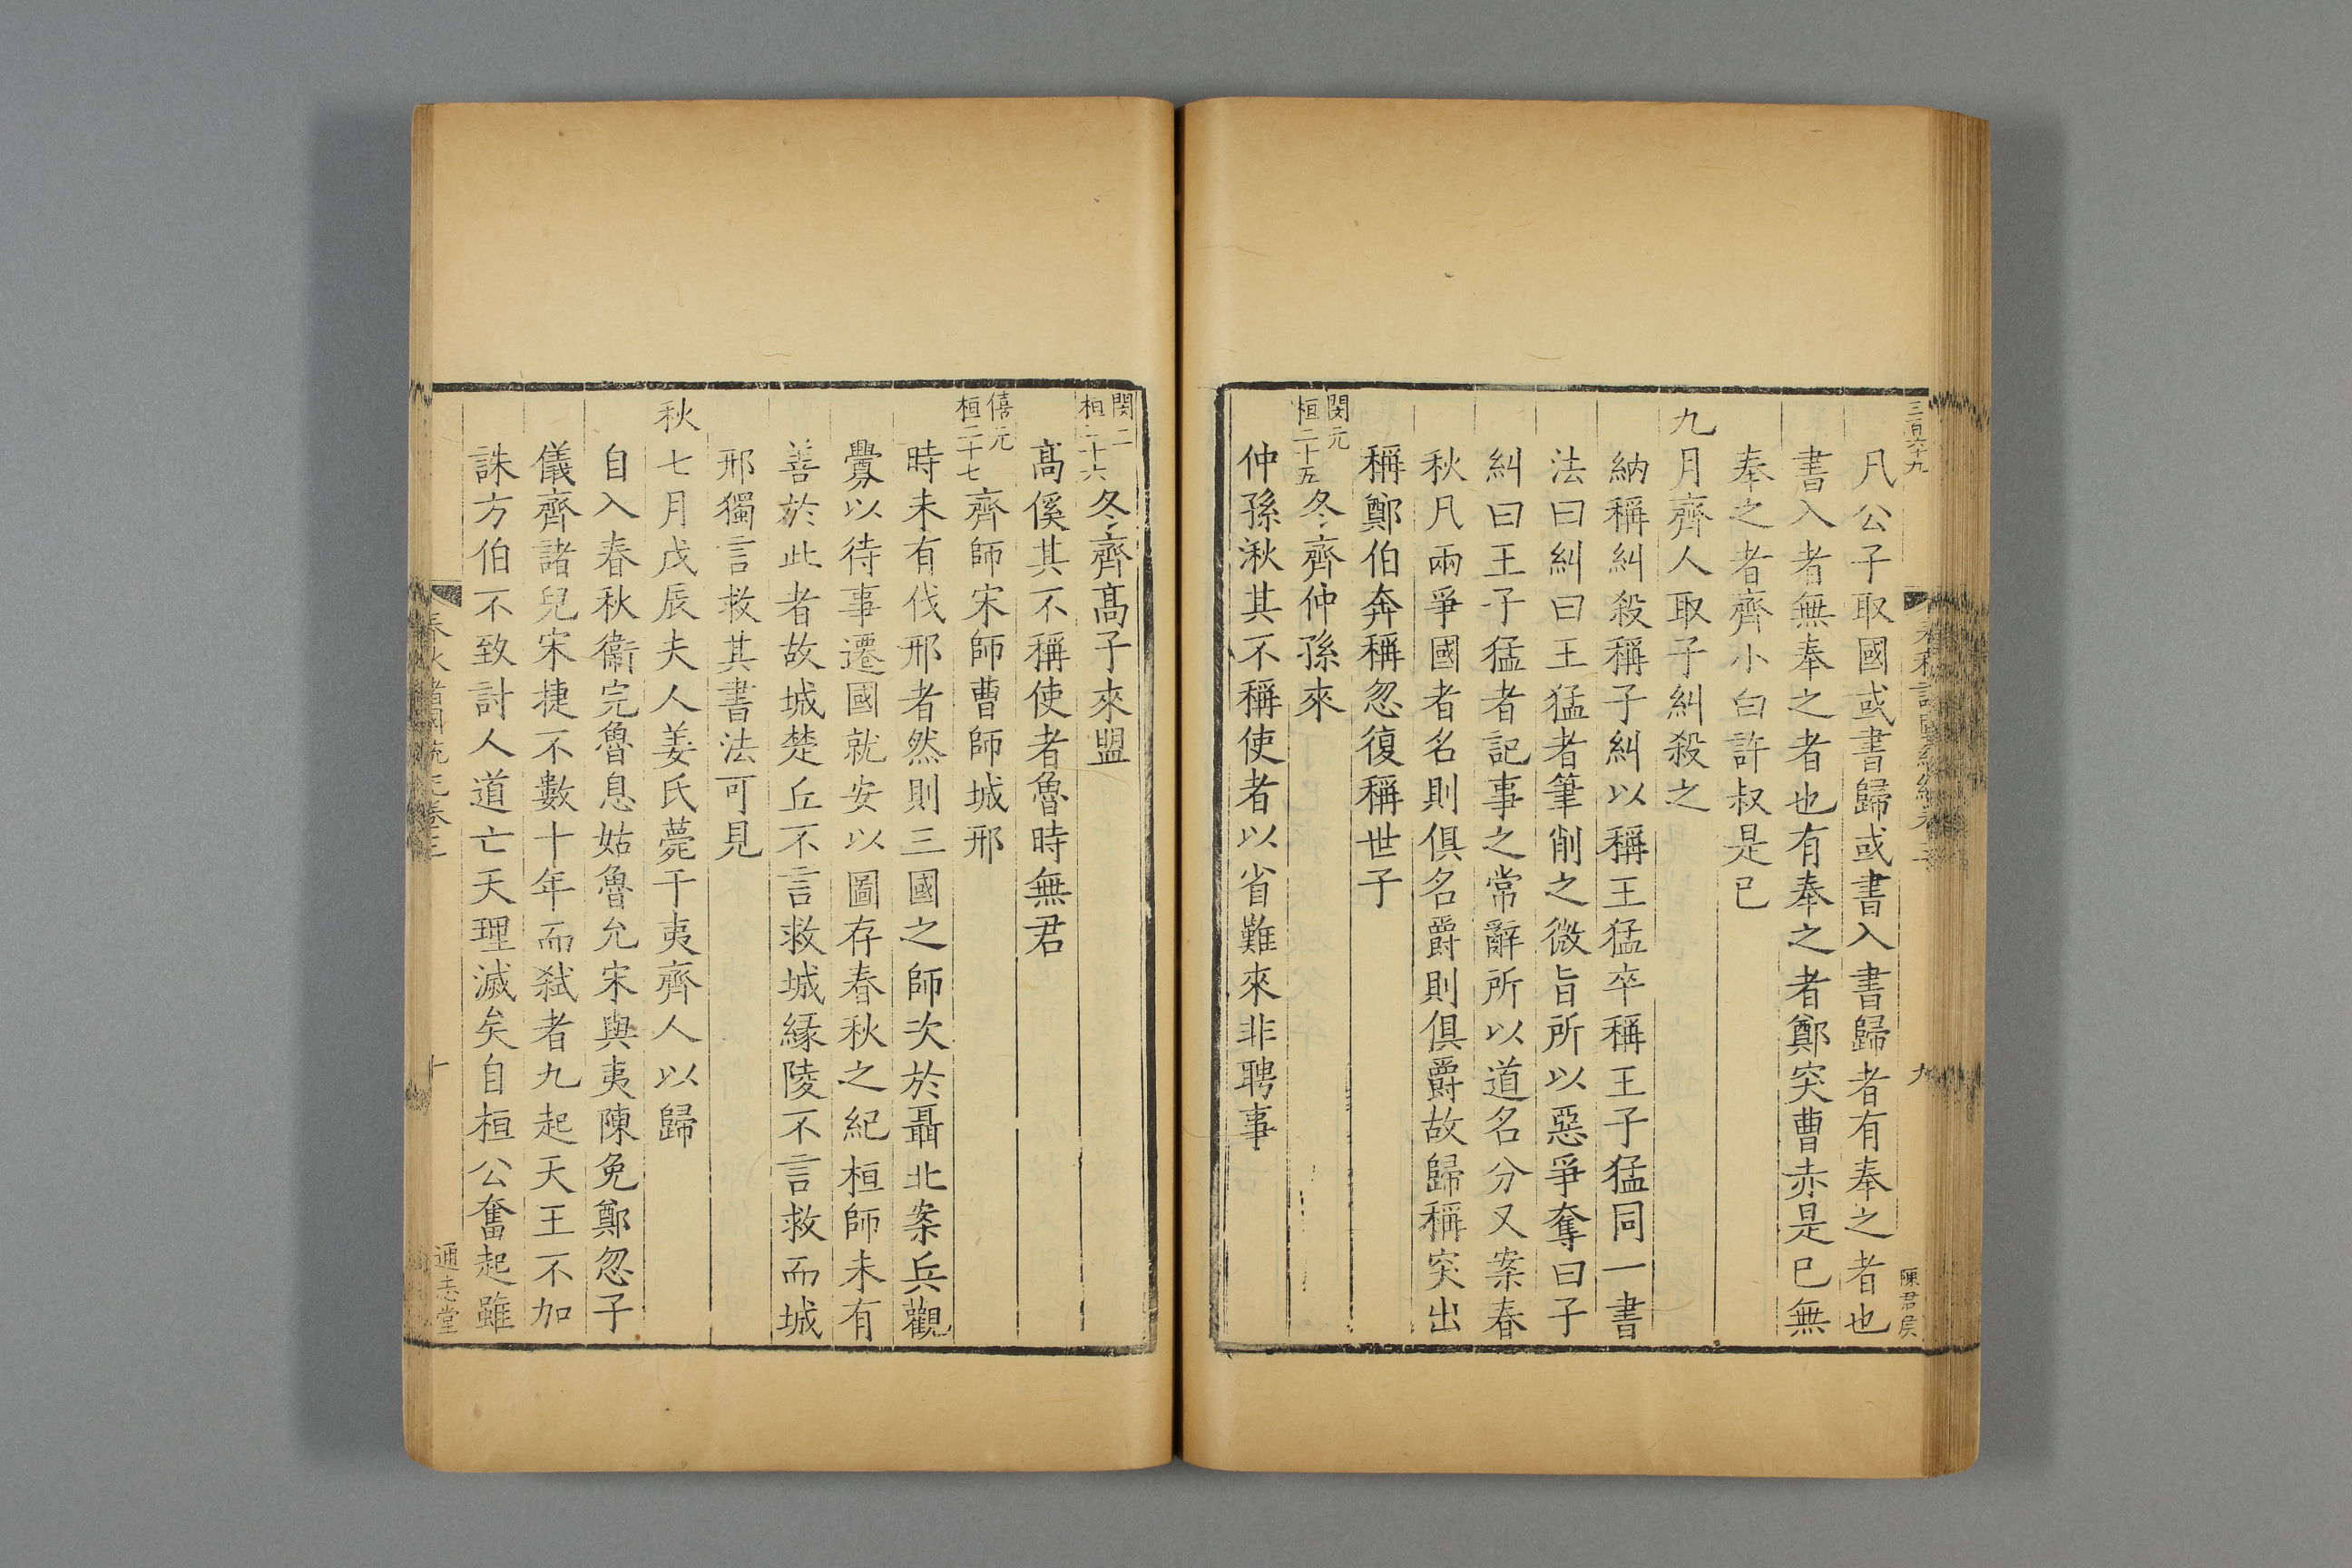 三百六十九
凡公子取國或書歸或書入書歸者有奉之者也
書入者無奉之者也有奉之者鄭突曹赤是已無
奉之者齊小白許叔是已
九月齊人取子糾殺之
納稱糾殺稱子糾以稱王猛卒稱王子猛同一書
法曰糾曰王猛者筆削之微旨所以惡爭奪曰子
糾曰王子猛者記事之常辭所以道名分又案春
秋凡兩爭國者名則俱名爵則俱爵故歸稱突出
稱鄭伯奔稱忽復稱世子
閔元桓二十五冬齊仲孫來
仲孫湫其不稱使者以省難來非聘事
九
陳君侯
閔二桓二十六冬齊髙子來盟
髙傒其不稱使者魯時無君
僖元桓二十七齊師宋師曹師城邢
時未有伐邢者然則三國之師次於聶北案兵觀
釁以待事遷國就安以圖存春秋之紀桓師未有
善於此者故城楚丘不言救城緣陵不言救而城
邢獨言救其書法可見
秋七月戊辰夫人姜氏薨于夷齊人以歸
自入春秋衞完魯息姑魯允宋與夷陳免鄭忽子
儀齊諸兒宋捷不數十年而弒者九起天王不加
誅方伯不致討人道亡天理滅矣自桓公奮起雖
春秋諸國統紀卷三
十
通志堂